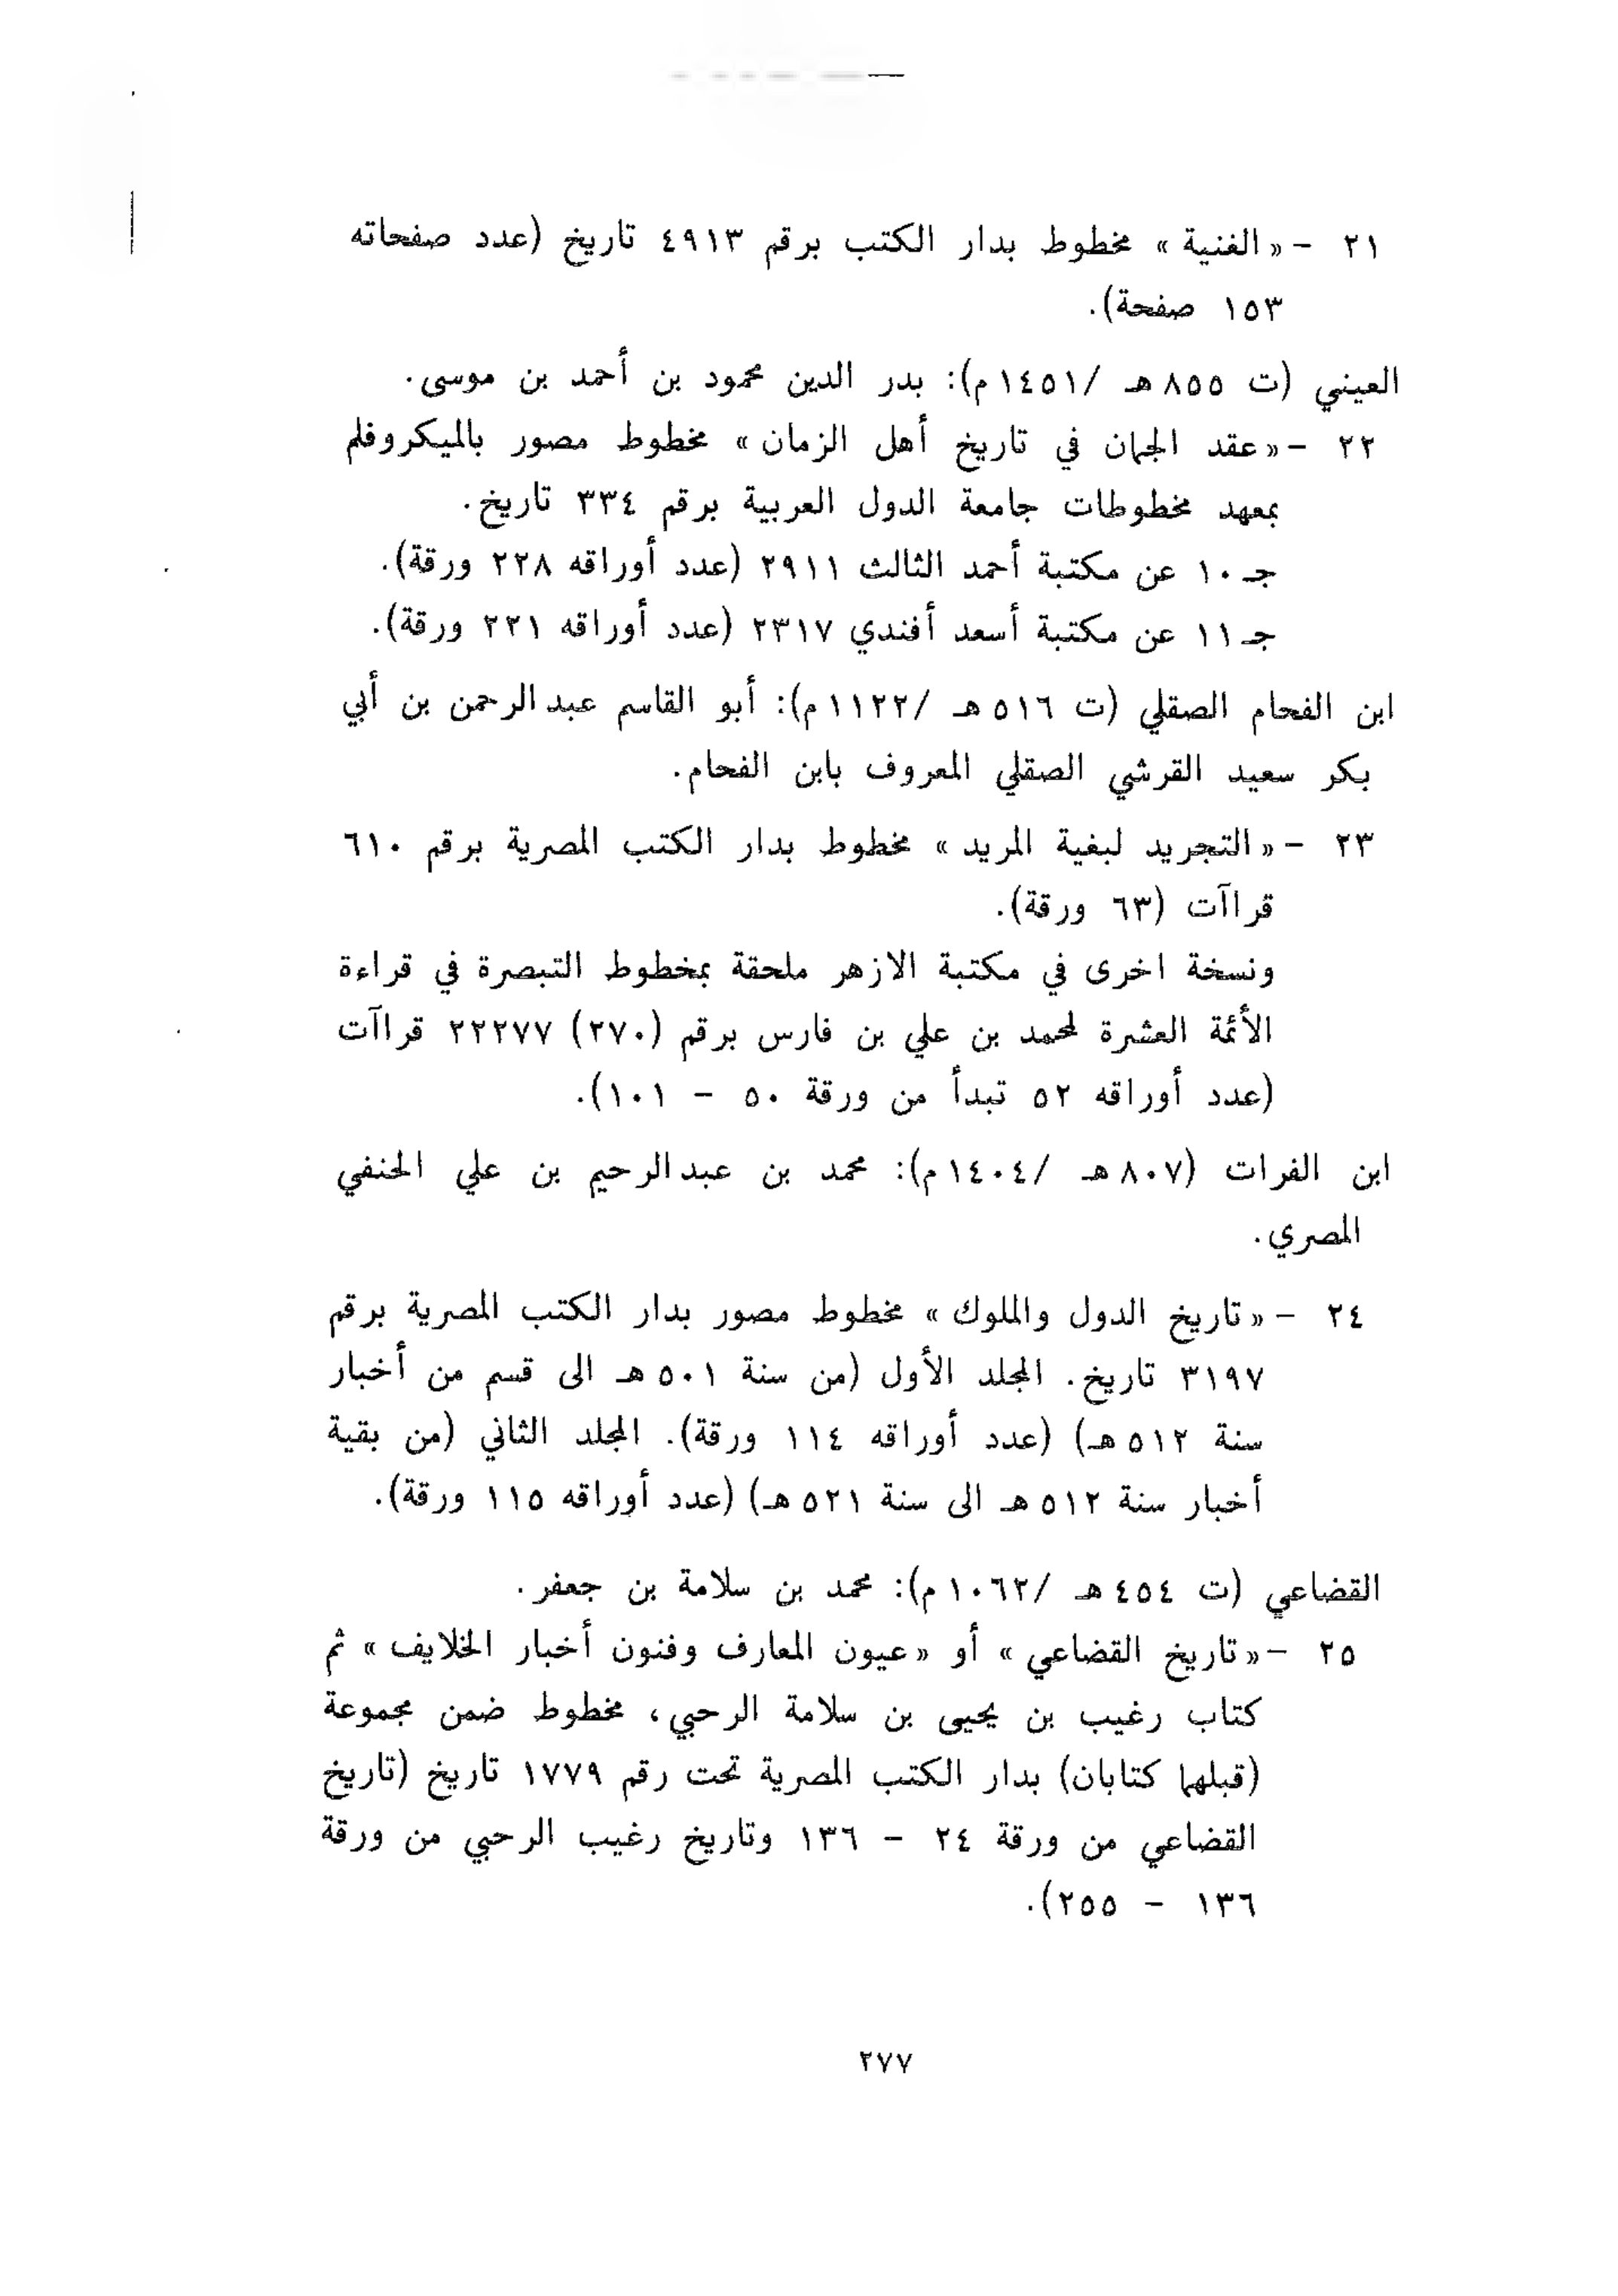 ٢١ - «الغنية» مخطوط بدار الكتب برقم ٤٩١٣ تاريخ (عدد صفحاته
١٥٣ صفحة).
العيني (ت ٨٥٥ هـ /١٤٥١ م): بدر الدين محمود بن أحمد بن موسى.
٢٢ - «عقد الجمان في تاريخ أهل الزمان» مخطوط مصور بالميكروفلم
بمعهد مخطوطات جامعة الدول العربية برقم ٣٣٤ تاريخ.
جـ ١٠ عن مكتبة أحمد الثالث ٢٩١١ (عدد أوراقه ٢٢٨ ورقة).
جـ ١١ عن مكتبة أسعد أفندي ٢٣١٧ (عدد أوراقه ٢٢١ ورقة).
ابن الفحام الصقلي (ت ٥١٦ هـ /١١٢٢ م): أبو القاسم عبد الرحمن بن أبي
بكر سعيد القرشي الصقلي المعروف بابن الفحام.
٢٣ - «التجريد لبغية المريد» مخطوط بدار الكتب المصرية برقم ٦١٠
قراآت (٦٣ ورقة).
ونسخة اخرى في مكتبة الازهر ملحقة بمخطوط التبصرة في قراءة
الأئمة العشرة لمحمد بن علي بن فارس برقم (٢٧٠) ٢٢٢٧٧ قراآت
(عدد أوراقه ٥٢ تبدأ من ورقة ٥٠ - ١٠١).
ابن الفرات (٨٠٧ هـ /١٤٠٤ م): محمد بن عبد الرحيم بن علي الحنفي
المصري.
٢٤ - «تاريخ الدول والملوك» مخطوط مصور بدار الكتب المصرية برقم
٣١٩٧ تاريخ. المجلد الأول (من سنة ٥٠١ هـ الى قسم من أخبار
سنة ٥١٢ هـ) (عدد أوراقه ١١٤ ورقة). المجلد الثاني (من بقية
أخبار سنة ٥١٢ هـ الى سنة ٥٢١ هـ) (عدد أوراقه ١١٥ ورقة).
القضاعي (ت ٤٥٤ هـ /١٠٦٢ م): محمد بن سلامة بن جعفر.
٢٥ - «تاريخ القضاعي» أو «عيون المعارف وفنون أخبار الخلايف» ثم
كتاب رغيب بن يحيى بن سلامة الرحبي، مخطوط ضمن مجموعة
(قبلهما كتابان) بدار الكتب المصرية تحت رقم ١٧٧٩ تاريخ (تاريخ
القضاعي من ورقة ٢٤ - ١٣٦ وتاريخ رغيب الرحبي من ورقة
١٣٦ - ٢٥٥).
٢٧٧